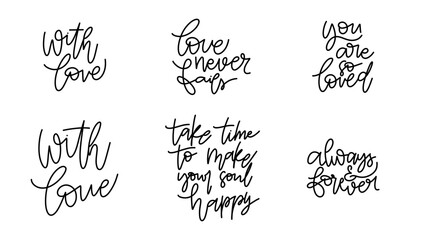 with
love
love
never
fails
you
are
so
loved
with
love
take time
to make
your soul
happy
always
&
forever